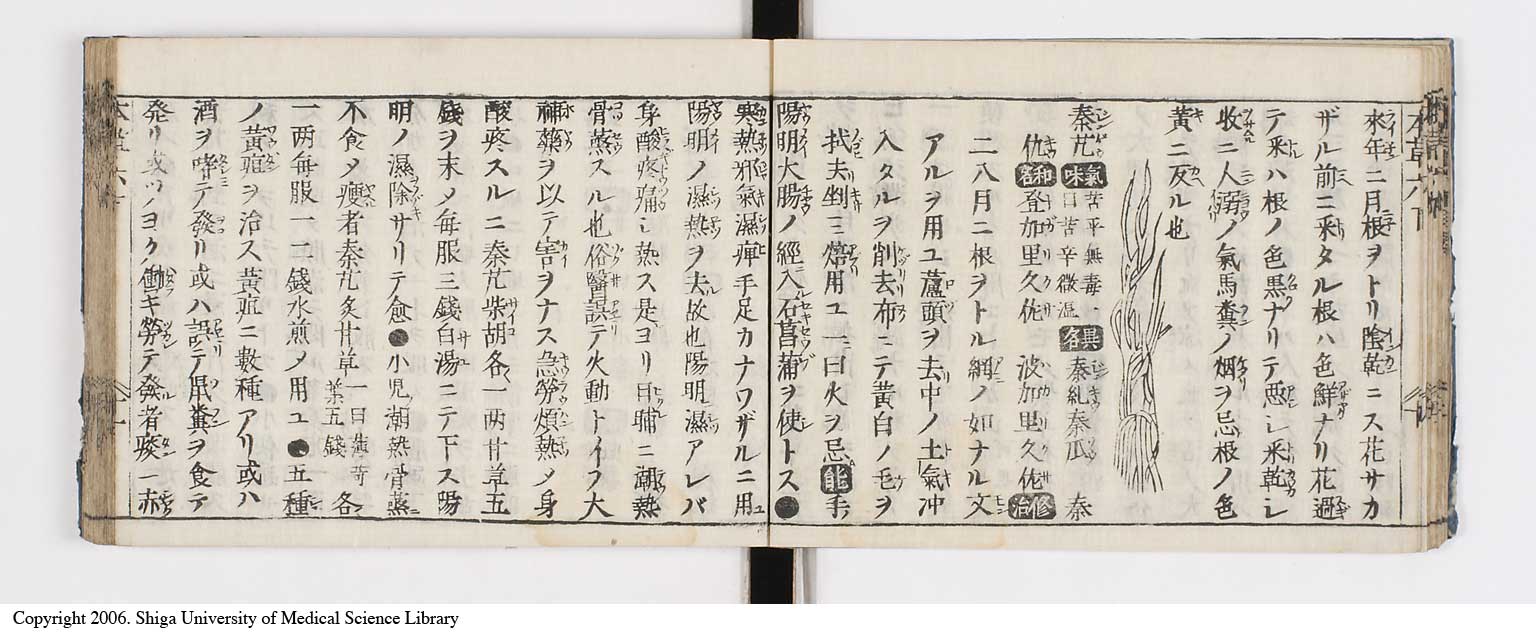 本草六下
来年二月根ヲトリ陰乾ニス花サカ
ザル前ニ采タル根ハ色鮮ナリ花過
テ采ハ根ノ色黒ナリテ悪シ采乾シ
收ニ人溺ノ氣馬糞ノ烟ヲ忌根ノ色
黄ニ反ル也
秦艽 氣味 苦平無毒一曰苦辛微温 異名 秦糺秦瓜 秦
仇 和名 登加里久佐 波加里久佐 修治
二八月ニ根ヲトル網ノ如ナル文
アルヲ用ユ蘆頭ヲ去中ノ土氣沖
入タルヲ削去布ニテ黄白ノ毛ヲ
拭去剉ミ焙用ユ一曰火ヲ忌 能 手
陽明大腸ノ經入石菖蒲ヲ使トス●
寒熱邪氣濕痺手足カナワザルニ用
陽明ノ濕熱ヲ去故也陽明濕アレバ
身酸疼痛シ熱ス是ヨリ日晡ニ潮熱
骨蒸スル也俗醫誤テ火動トイフ大
補藥ヲ以テ害ヲナス急勞煩熱メ身
酸疼スルニ秦艽柴胡各一两甘草五
錢ヲ末メ毎服三錢白湯ニテ下ス陽
明ノ濕除サリテ愈●小児潮熱骨蒸
不食メ痩者秦艽炙甘草一曰薄荷葉五錢各
一两毎服一二錢水煎メ用ユ●五種
ノ黄疸ヲ治ス黄疸ニ數種アリ或ハ
酒ヲ嗜テ發リ或ハ誤テ鼠糞ヲ食テ
発リ或ツノヨク働キ勞テ發者痰一赤
Copyright 2006. Shiga University of Medical Science Library